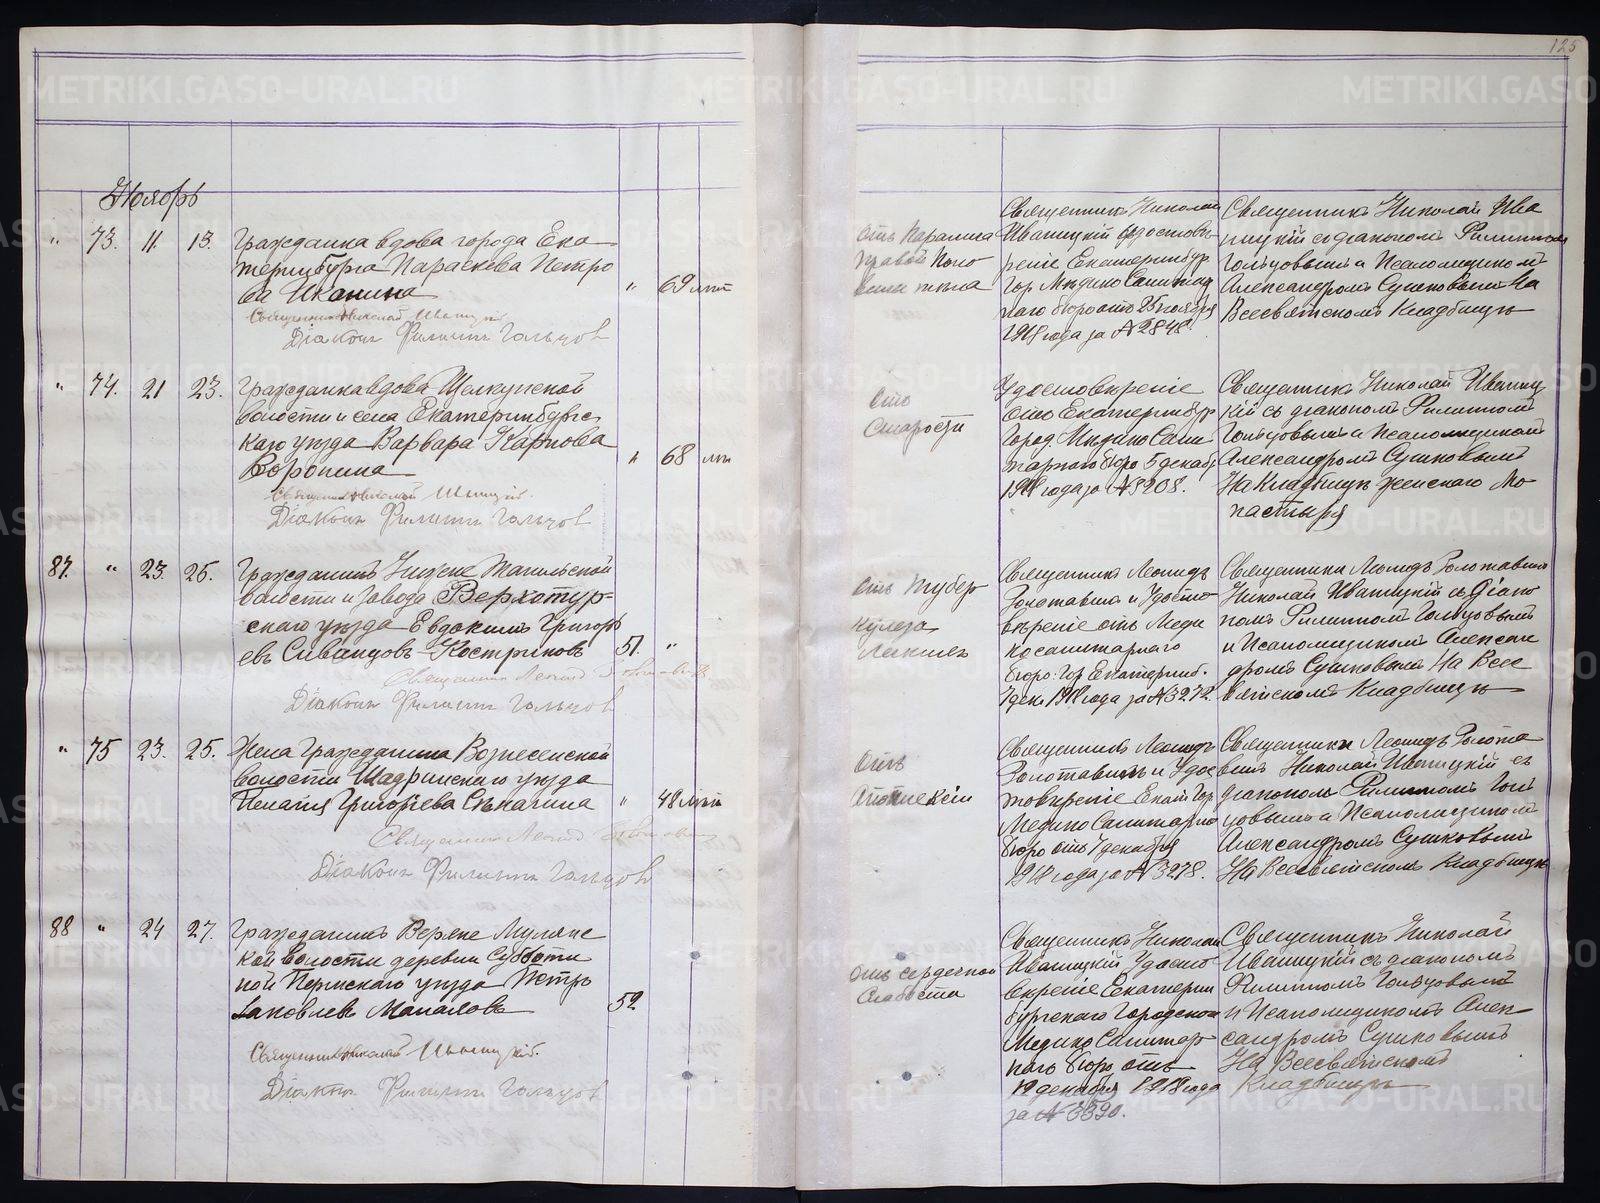 125
Ноябрь
" 73. 11. 13. Гражданка вдова города Ека-
теринбурга Параскева Петро
ва Иканина " 69 лѣт
Священник Николай Иваницкій
Діаконъ Филиппъ Гольцов
Отъ Паралича
правой поло
вины тѣла
Священникъ Николай
Иваницкій Удостовѣ
реніе Екатеринбур
Гор. Мѣдико Санитар
наго бюро отъ 25 ноября
1918 года за № 2848.
Священникъ Николай Ива
ницкій съ діакономъ Филиппомъ
Гольцовымъ и Псаломщикомъ
Александромъ Сушковымъ На
Всесвятскомъ Кладбищѣ
" 74. 21 23. Гражданка вдова Щелкунской
волости и села Екатеринбургс
каго уѣзда Варвара Карпова
Воронина " 68 лѣт
Священник Николай Иваницкій.
Діаконъ Филиппъ Гольцов
Отъ
Старости
Удостовѣреніе
Отъ Екатеринбур
Город. Мѣдико Сани
тарнаго бюро 5 декабр
1918 года за № 3208.
Священникъ Николай Иваниц
кій съ діакономъ Филиппомъ
Гольцовымъ и Псаломщикомъ
Александромъ Сушковымъ
На Кладбищѣ женскаго Мо
настыря
87. " 23. 25. Гражданинъ Нижне Тагильской
волости и завода Верхотур-
скаго уѣзда Евдокимъ Григорь
евъ Сиванцовъ-Костриковъ 51. "
Священник Леонид
Діаконъ Филиппъ Гольцов
Отъ Тубер
кулеза
Легкихъ
Священникъ Леонидъ
и Удосто
вѣреніе отъ Меди
косанитарнаго
бюро: Гор. Екатеринб.
7 дек. 1918 года за № 3272.
Священники Леонидъ
Николай Иваницкій съ Діако
номъ Филиппомъ Гольцовымъ
и Псаломщикомъ Алексан
дромъ Сушковымъ На Все
вятскомъ Кладбищѣ
" 75 23. 25. Жена Гражданина Вознесенской
волости Шадринскаго уѣзда
Пелагія Григорьева Сѣначина " 48 лѣт
Священник Леонид
Діаконъ Филиппъ Гольцов
Отъ
Апоплексіи
Священникъ Леонидъ
и Удос
товѣреніе Екат. Гор
Медико Санитарно
бюро отъ 7 декабря
1918 года за № 3278.
Священники Леонидъ
Николай Иваницкій съ
діакономъ Филиппомъ Голь
цовымъ и Псаломщикомъ
Александромъ Сушковымъ
На Всесвятскомъ Кладбищѣ
88 " 24 27. Гражданинъ Верхне Муллинс
кой волости деревни Субботи
ной Пермскаго уѣзда Петръ
Іаковлевъ Мапаловъ 52.
Священник Николай Иваницкій.
Діаконъ Филиппъ Гольцов
Отъ сердечной
Слабости
Священникъ Николай
Иваницкій Удосто
вѣреніе Екатерин
бургскаго Городского
Медико Санитар
наго бюро отъ
12 декабря 1918 года
за № 3390.
Священникъ Николай
Иваницкій съ діакономъ
Филиппомъ Гольцовымъ
и Псаломщикомъ Алек-
сандромъ Сушковымъ
На Всесвятскомъ
Кладбищѣ